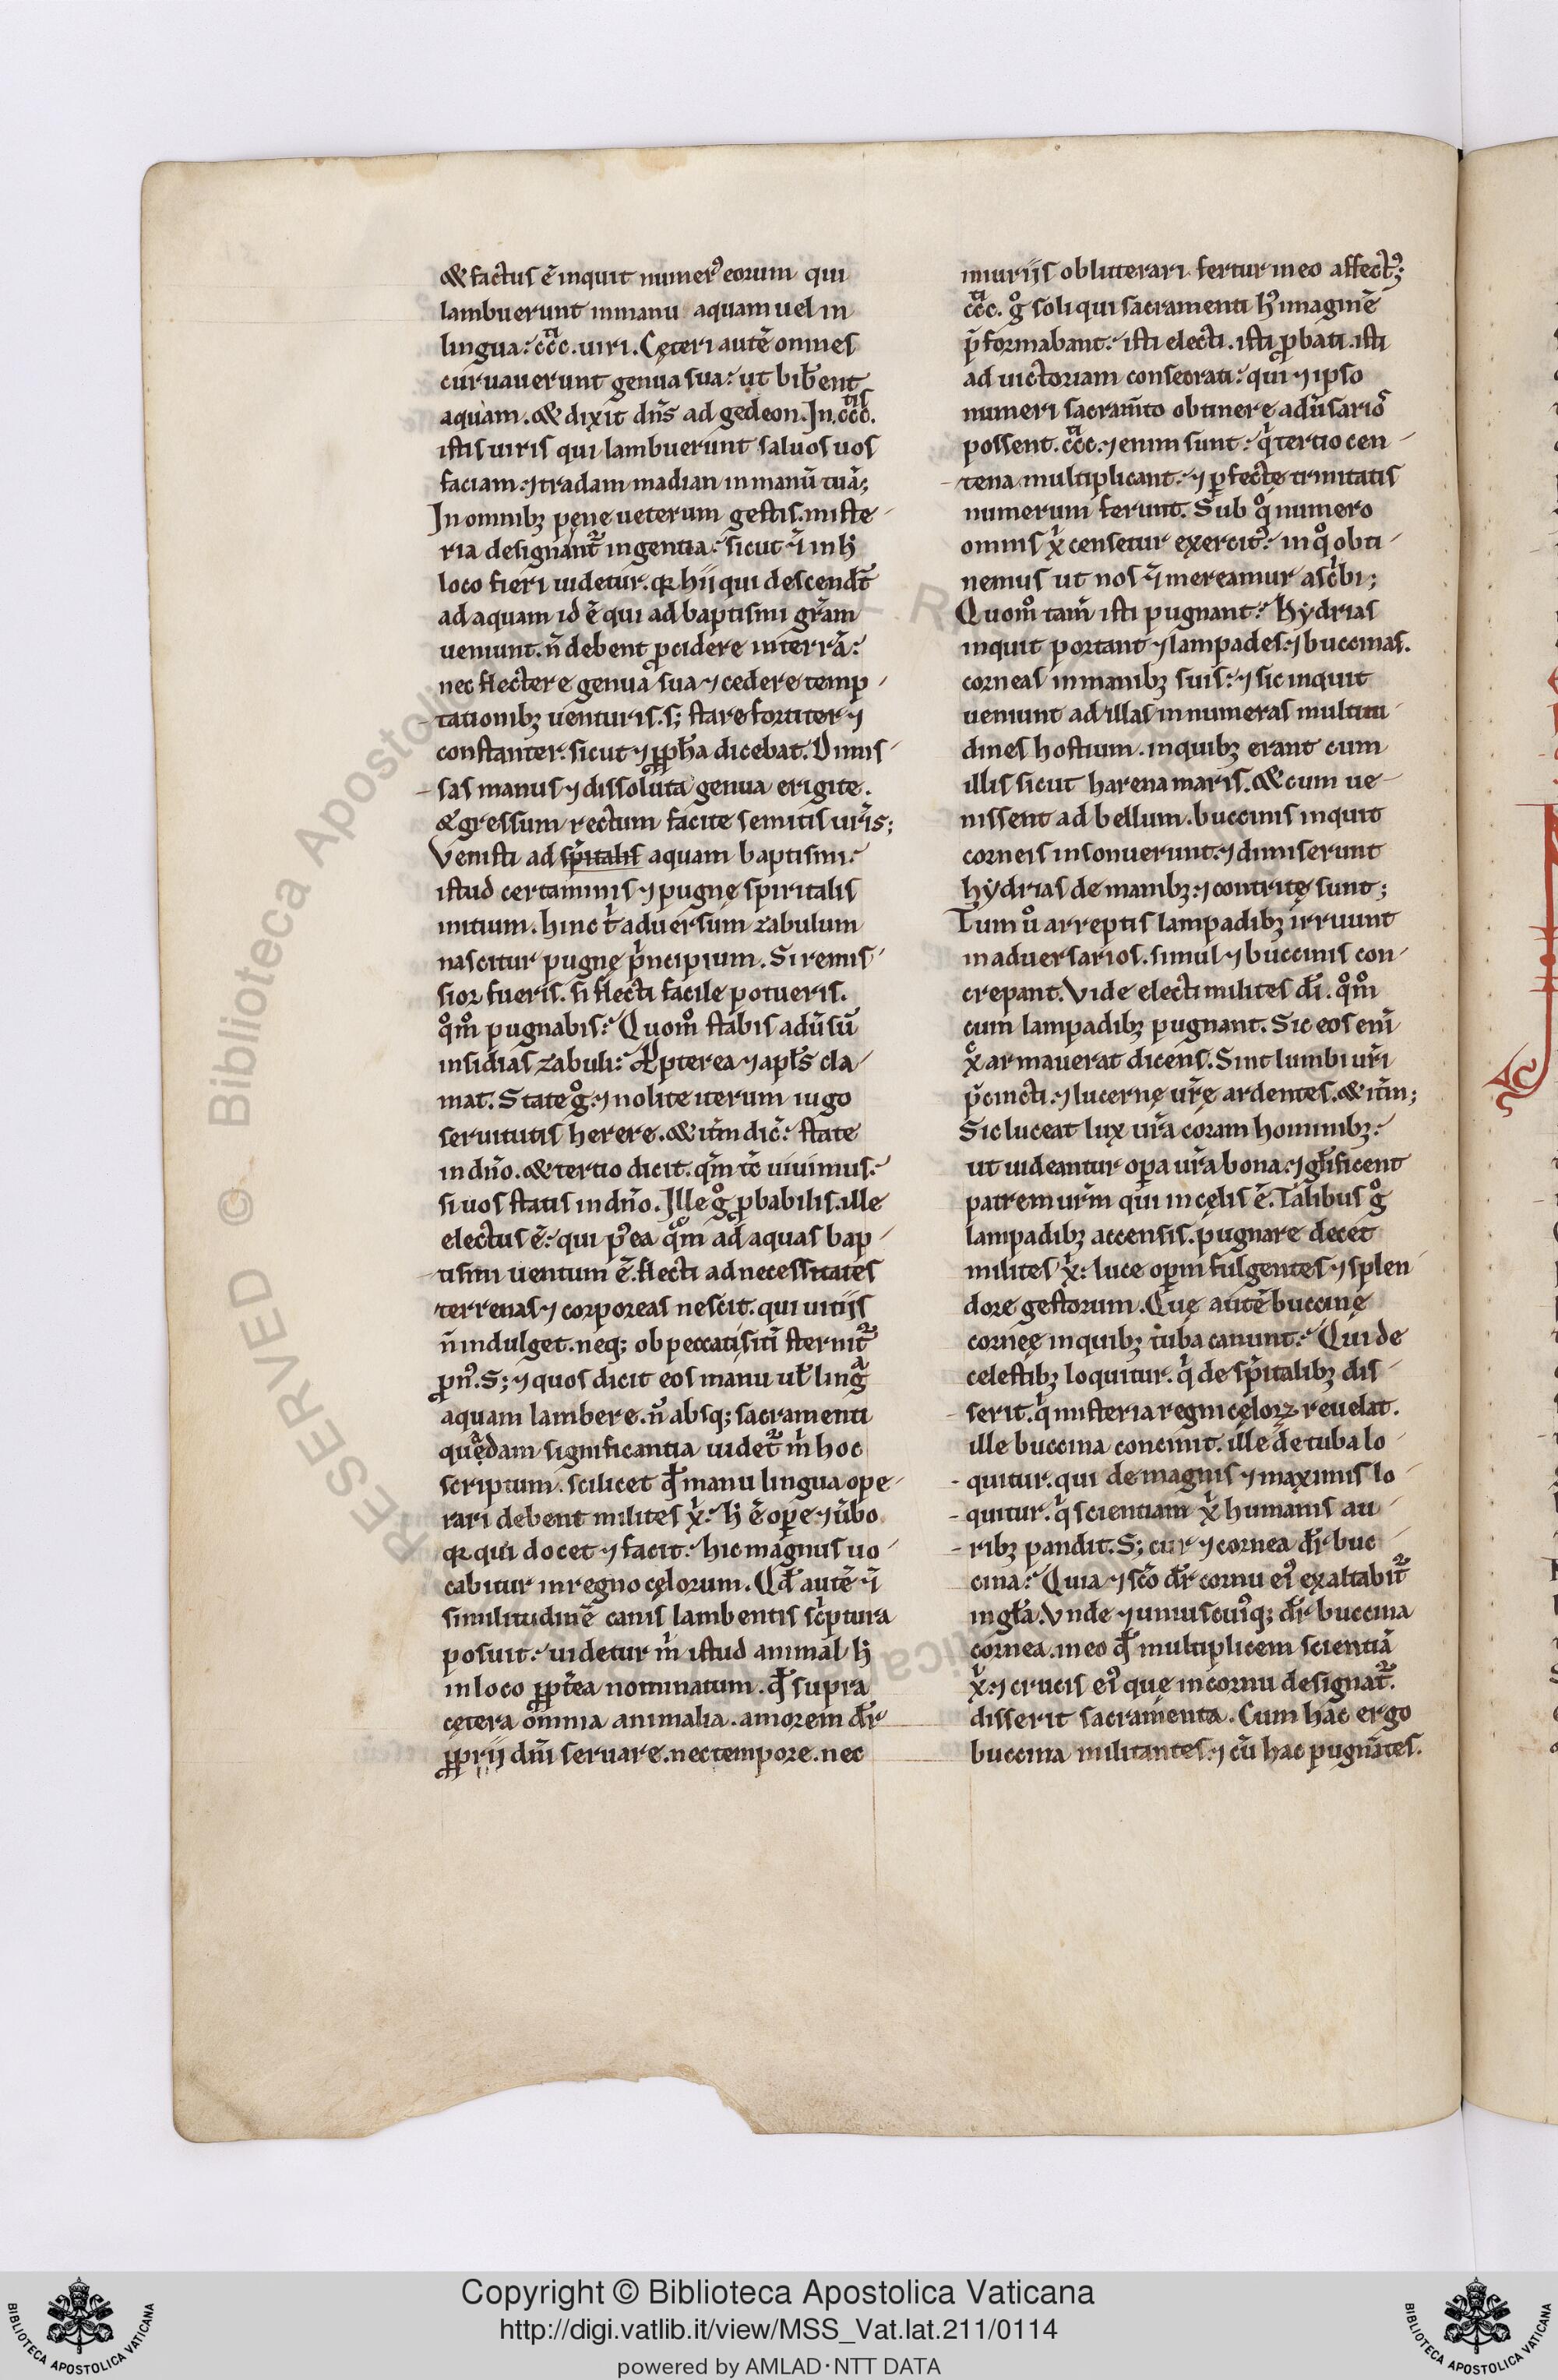 & factus ē inquit numer᷒ eorum qui
lambuerunt in manu aquam uel in
lingua: cccᵃ. uiri. Cęteri autē omnes
curuauerunt genua sua: ut bib̄ent
aquam. & dixit dn̄s ad gedeon. In .cccᵗⁱˢ.
istis uiris qui lambuerunt saluos uos
faciam. ⁊ tradam madian in manū tuā;
In omnibꝫ pęne ueterum gestis. miste-
ria designant᷑ ingentia: sicut ⁊̄ in h̓
loco fieri uidetur. qꝛ hii qui descend̄t
ad aquam id ē qui ad baptismi gr̄am
ueniunt. n̄ debent ꝓcidere in terrā:
nec flectere genua sua ⁊ cedere temp-
tationibꝫ uenturis. s; stare fortiter ⁊
constanter. sicut ⁊ ꝓph̄a dicebat. Dimis-
sas manus ⁊ dissoluta genua erigite.
& gressum rectum facite semitis ur̄is;
Venisti ad spitalis aquam baptismi:
istud certaminis ⁊ pugnę spiritalis
initium. hinc t̄ aduersum zabulum
nascitur pugnę pͥncipium. Si remis-
sior fueris. si flecti facile potueris.
qͦm̊ pugnabis: Quom̊ stabis adu̅sū
insidias zabuli: Ꝓpterea ⁊ apl̄s cla-
mat. State gͦ. ⁊ nolite iterum iugo
seruitutis herere. & it̄m dic̄: state
in dn̄o. & tertio dicit. qm̄ t̄c uiuimus:
si uos statis in dn̄o. Ille gͦ ꝓbabilis. ille
electus ē: qui p᷒ea qͣm ad aquas bap-
tismi uentum ē. flecti ad necessitates
terrenas ⁊ corporeas nescit. qui uitiis
n̄ indulget. neq; ob peccati sitī sternit᷑
ꝓn᷒. S; ⁊ quos dicit eos manu ul̄ lingͣ
aquam lambere. n̄ absq; sacramenti
quędam significantia uidet᷑ mͥ hoc
scriptum. scilicet qd̄ manu lingua ope-
rari debent milites x̄ͥ. h̓ ē oꝑe ⁊ ūbo
qꝛ qui docet ⁊ facit: hic magnus uo-
cabitur in regno cęlorum. Qd̄ autē ⁊̄
similitudinē canis lambentis scͥptura
posuit: uidetur mͥ istud animal h̓
in loco ꝓpt̄ea nominatum. qd̄ supra
cętera omnia animalia. amorem dr̄
ꝓprii dn̄i seruare. nec tempore. nec
iniuriis obliuterari fertur in eo affect᷒;
cccᵃ. gͦ soli qui sacramenti h᷒ imaginē
p̄formabant: isti electi. isti ꝓbati. isti
ad uictoriam consecrati: qui ⁊ ipso
numeri sacram̄to obtinere adu̅sarioˢ
possent. cccᵃ. ⁊ enim sunt: qͥ tertio cen-
tena multiplicant: ⁊ ꝑfectę trinitatis
numerum ferunt. Sub qͦ numero
omnis x̄ͥ censetur exercit᷒: in qͦ obti-
nemus ut nos ⁊̄ mereamur ascͥbi;
Quom̊ tam̄ isti pugnant: Hydrias
inquit portant ⁊ lampades. ⁊ buccinas.
corneas in manibꝫ suis: ⁊ sic inquit
ueniunt ad illas innumeras multitu-
dines hostium. in quibꝫ erant cum
illis sicut harena maris. & cum ue-
nissent ad bellum. buccinis inquit
corneis insonuerunt. ⁊ dimiserunt
hydrias de manibꝫ. ⁊ contritę sunt;
Tum uͦ arreptis lampadibꝫ irruunt
in aduersarios. simul ⁊ buccinis con-
crepant. Vide electi milites dī. qͦm̊
cum lampadibꝫ pugnant. Sic eos enī
xͦ armauerat dicens. Sint lumbi ur̄i
p̄cincti. ⁊ lucernę ur̄ę ardentes. & it̄m;
Sic luceat lux ur̄a coram hominibꝫ:
ut uideantur oꝑa ur̄a bona: ⁊ gl̄ificent
patrem ur̄m qui in cęlis ē. Talibus gͦ
lampadibꝫ accensis. pugnare decet
milites x̄ͥ: luce oꝑm fulgentes ⁊ splen
dore gestorum. Quę autē buccinę
cornęę in quibꝫ tuba canunt: Qui de
celestibꝫ loquitur. qͥ de spͥitalibꝫ dis-
serit. qͥ misteria regni cęloꝝ reuelat.
ille buccina concinit. ille de tuba lo-
quitur. qui de magnis ⁊ maximis lo-
quitur. qͥ scientiam x̄ͥ humanis au-
ribꝫ pandit. S; cur ⁊ cornea dr̄ buc
cina: Quia ⁊ sc̄o dr̄ cornu ei᷒ exaltabit᷑
in gl̄a. Vnde ⁊ uniuscui᷒q; dr̄ buccina
cornea. in eo qd̄ multiplicem scientiā
x̄ͥ. ⁊ crucis ei᷒ quę in cornu designat᷑.
disserit sacramenta. Cum hac ergo
buccina militantes. ⁊ cū hac pugnātes.
RESERVED © Biblioteca Apostolica
Copyright © Biblioteca Apostolica Vaticana
http://digi.vatlib.it/view/MSS_Vat.lat.211/0114
powered by AMLAD·NTT DATA
BIBLIOTECA APOSTOLICA VATICANA
BIBLIOTECA APOSTOLICA VATICANA